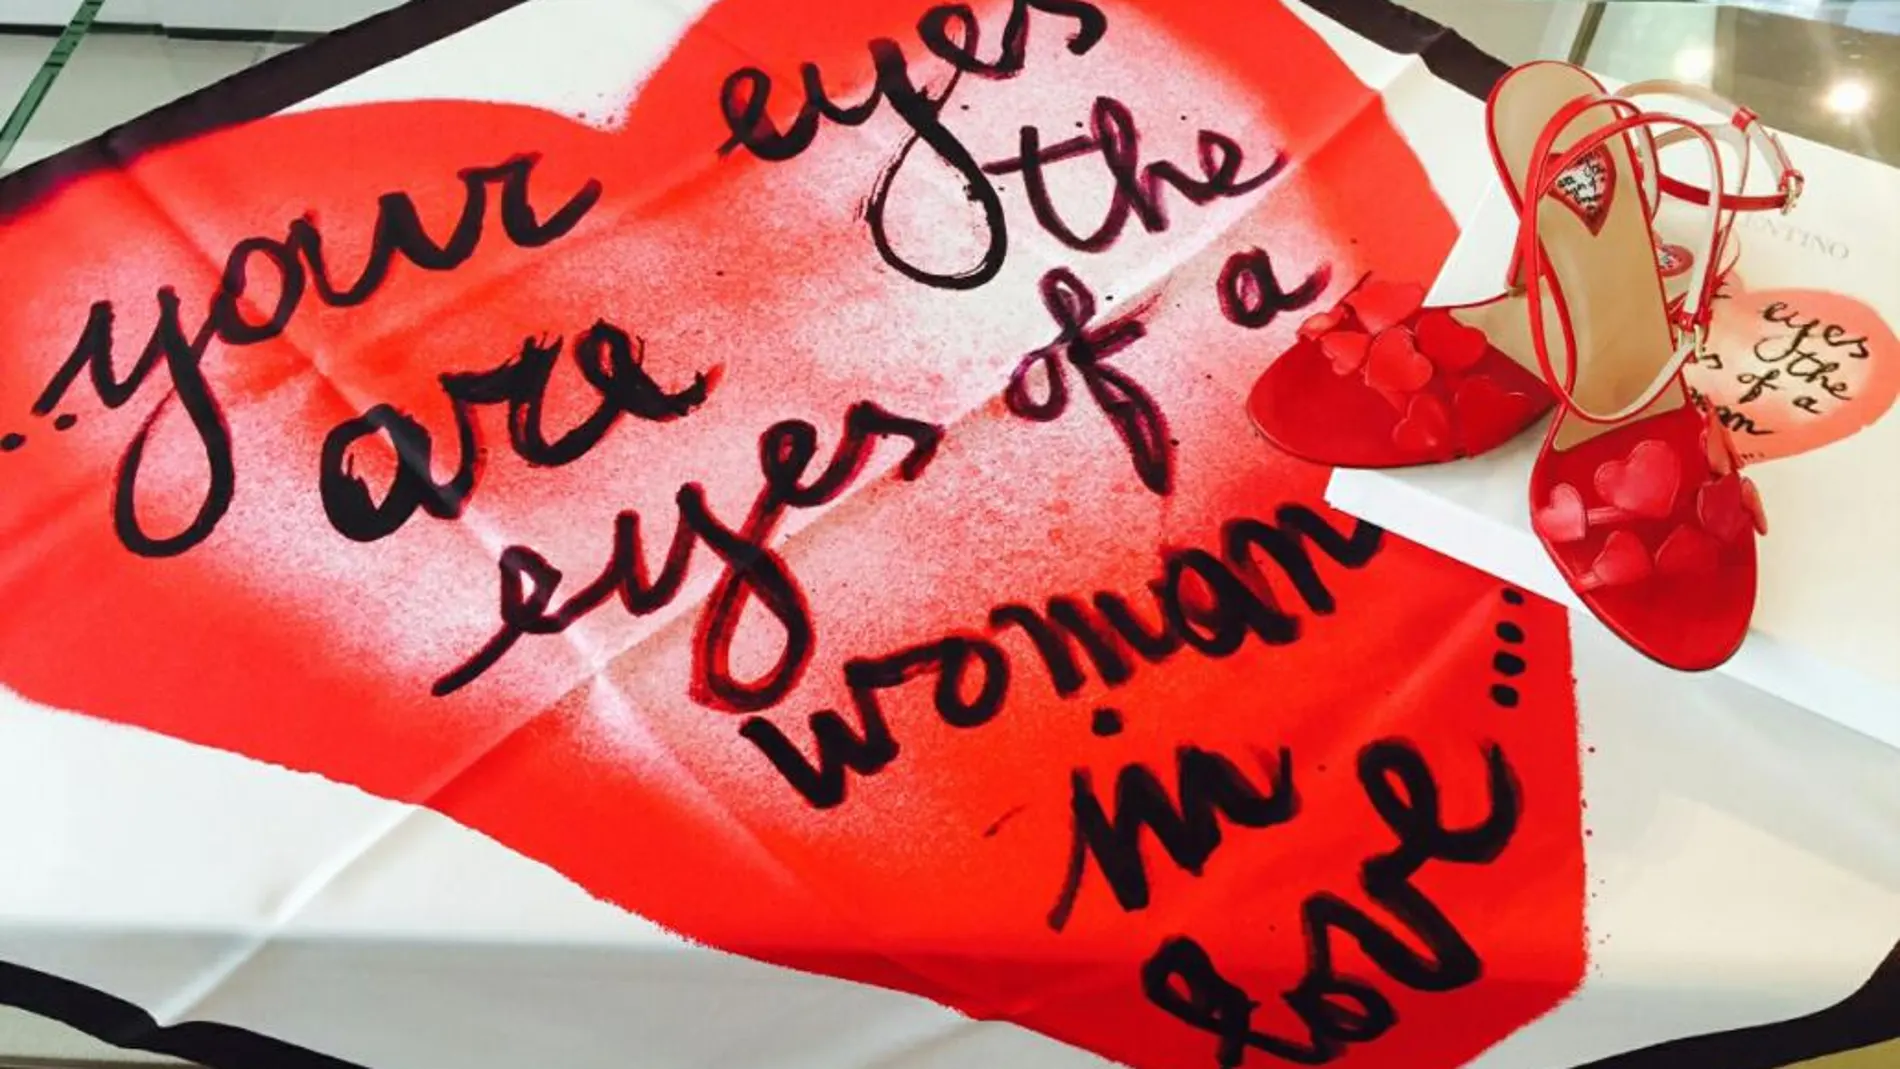 ..your eyes
are the
eyes of a
woman....
in
love
ENTINO
eyes
the
of a